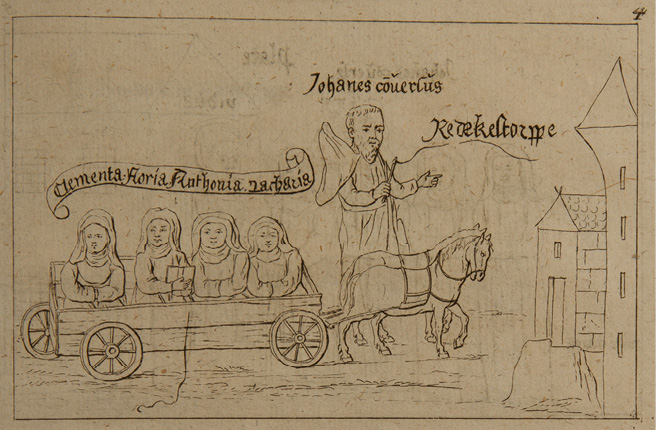 4
Johanes cōverſus
Redekeſtorppe
Clementa · Floria Anthonia · Zacharia